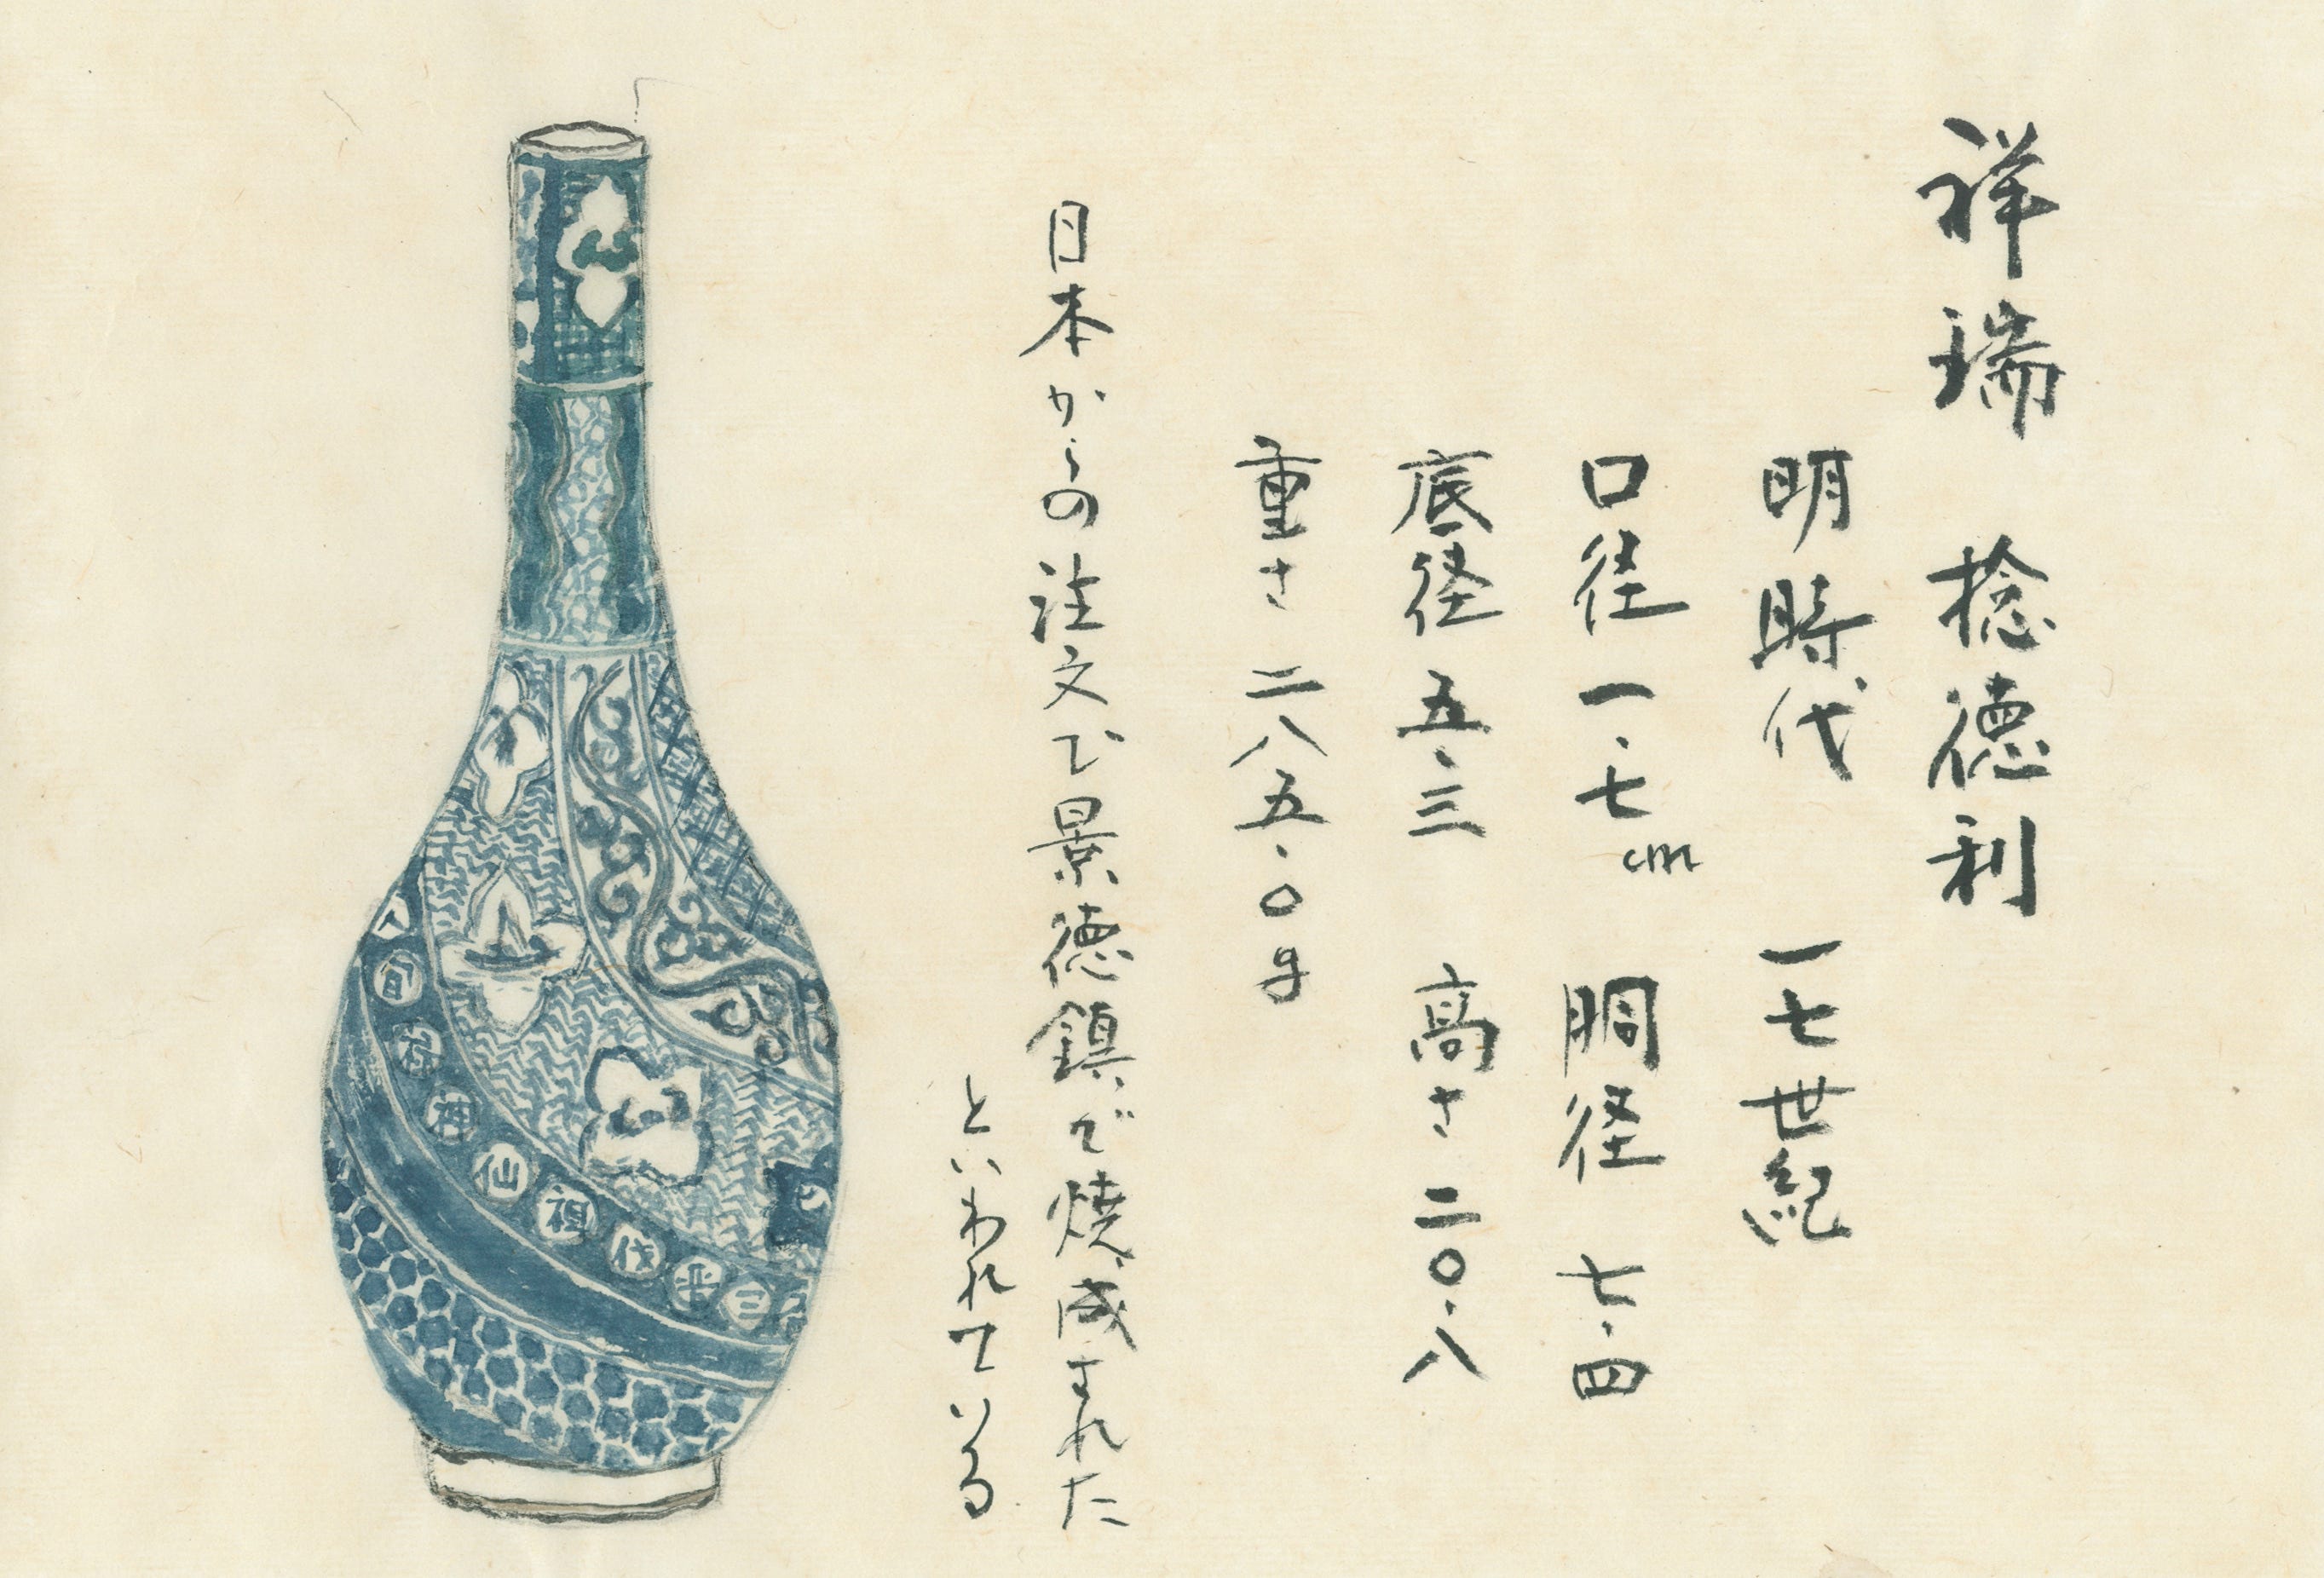 祥瑞 捻徳利
明時代 一七世紀
口径 一.七cm 胴径 七.四
底径 五.三 高さ 二〇.八
重さ 二八五.〇g
日本からの注文で景徳鎮で焼成された
といわれている
仙
祖